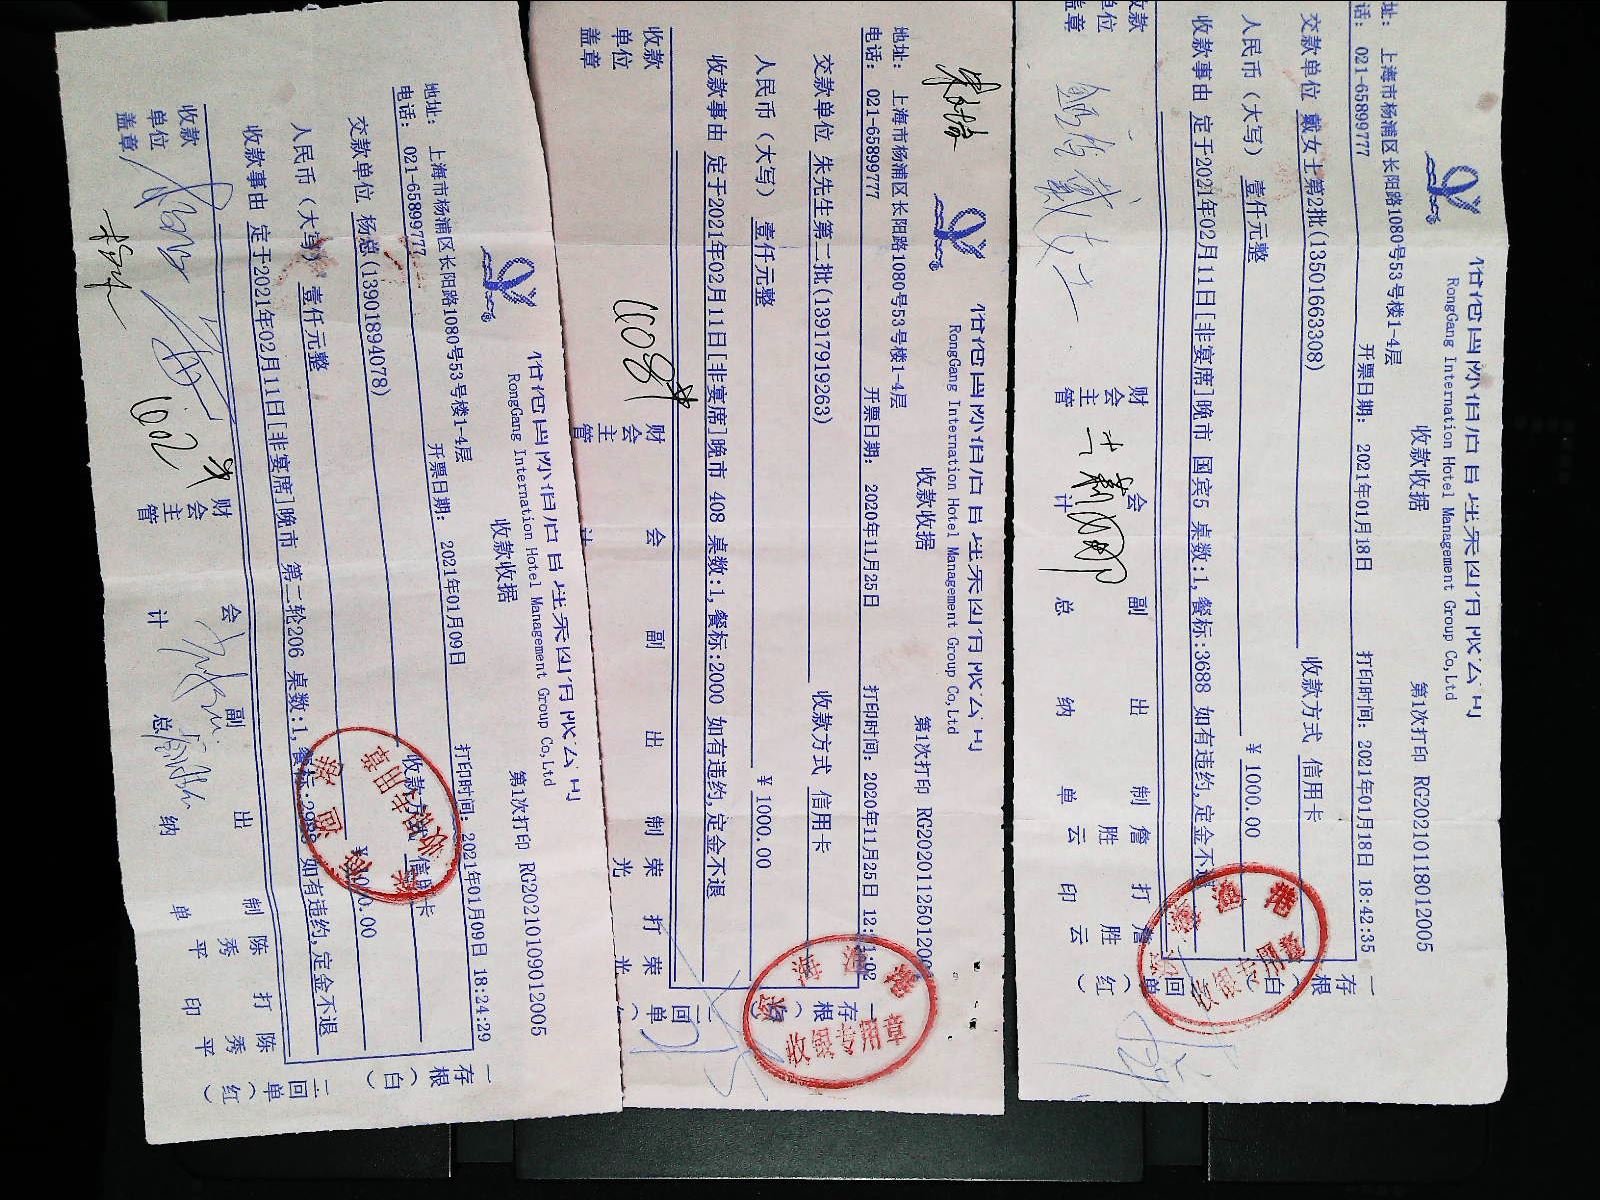 RongGang International Hotel Management Group Co,Ltd
收款收据
第1次打印 RG202101109012005
地址: 上海市杨浦区长阳路1080号53号楼1-4层
电话: 021-65899777
开票日期: 2021年01月09日
打印时间: 2021年01月09日 18:24:29
交款单位 杨总(13901894078)
收款方式 信用卡
人民币(大写) 壹仟元整
收款事由 定于2021年02月11日[非宴席]晚市 第二轮206 桌数:1,餐标:2988 如有违约,定金不退
收款单位盖章
财会主管
会计
副总
出纳
制单 陈秀平
打印 陈秀平
一存根(白)
二回单(红)
收银专用章
RongGang International Hotel Management Group Co,Ltd
收款收据
第1次打印 RG20201125012
地址: 上海市杨浦区长阳路1080号53号楼1-4层
电话: 021-65899777
开票日期: 2020年11月25日
打印时间: 2020年11月25日
交款单位 朱先生第二批(13917919263)
收款方式 信用卡
人民币(大写) 壹仟元整
¥1000.00
收款事由 定于2021年02月11日[非宴席]晚市 408 桌数:1,餐标:2000 如有违约,定金不退
收款单位盖章
财会主管
会计
副
出
制 荣光
打 荣光
一存根
二回单
收银专用章
RongGang International Hotel Management Group Co,Ltd
收款收据
第1次打印 RG202101118012005
址: 上海市杨浦区长阳路1080号53号楼1-4层
话: 021-65899777
开票日期: 2021年01月18日
打印时间: 2021年01月18日 18:42:35
交款单位 戴女士第2批(13501663308)
收款方式 信用卡
人民币(大写) 壹仟元整
¥1000.00
收款事由 定于2021年02月11日[非宴席]晚市 国宾5 桌数:1,餐标:3688 如有违约,定金不退
财会主管
会计
副总
出纳
制单 詹胜云
打印 詹胜云
一存根(白)
回单(红)
收银专用章